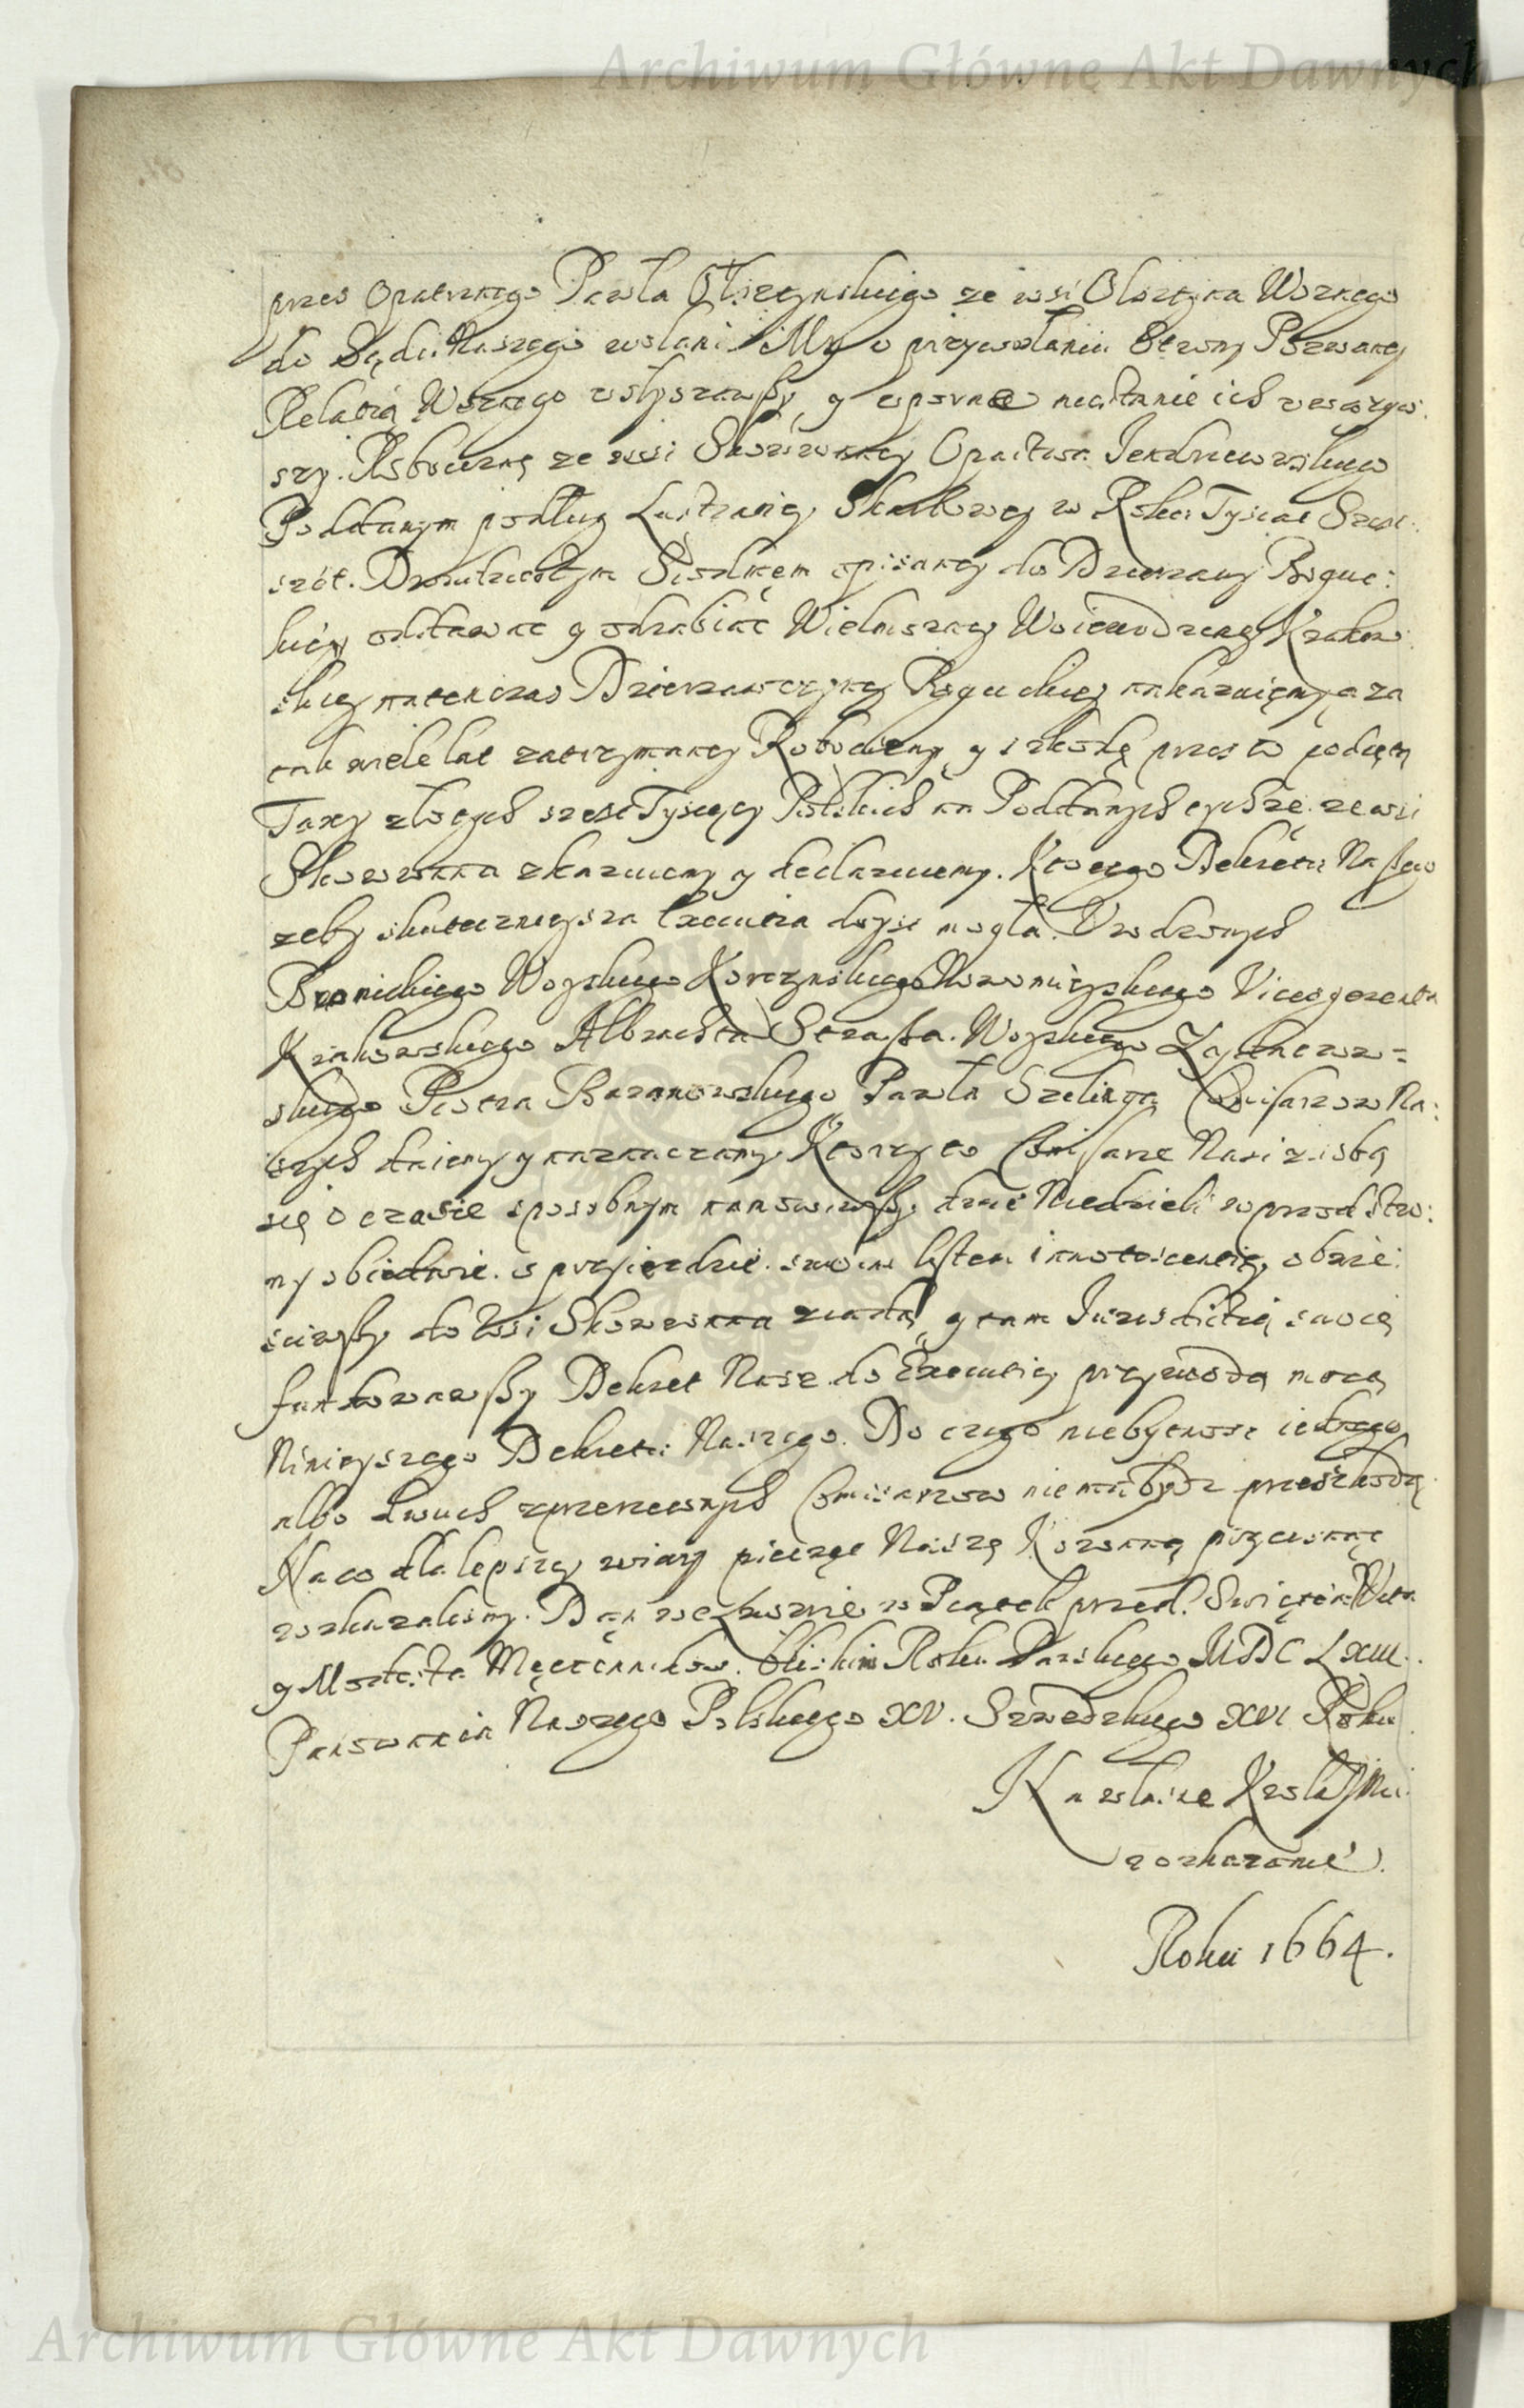 Archiwum Główne Akt Dawnych
przes Opatrznego Pawła Olszczynskiego ze wsi Olszczyna Woznego
do Sądu Naszego wołani. My o przywołaniu Strony Pozwaney
Relatią Woznego usłyszawszy y uporne niestanie ich uwazyw:
szy. Robociznę ze wsi Skowronney Opactwa Jendrzeiowskiego
Poddanym podług Lustraciey Skarbowey w Roku Tysiąc Szesc:
szót. Dwudziestym Siodmem opisaney do Dzierzawy Roguc:
kiey oddawac y odrabiać Wielmozney Woiewodziney Krakow:
skiey natenczas Dzierzawczyney Roguckiey nakazuięmy, a za
tak wiele lat zatrzymaney Robocizny y szkodę przes to podiętą
Taxy złotych szesc Tysięcy Polskich na Poddanych tychze ze wsi
Skowronna skazuiemy y declaruiemy. Ktorego Dekretu Naszego
zeby skutecznieysza Executia doysc mogła. Urodzonych
Bronickiego Woyskiego Korczynskiego Nowomieyskiego Vicesgerenta
Krakowskiego Albrachta Strasza. Woyskiego
skiego Piotra Baranowskiego Pawła Szeliga Comisarzow Na:
szych daiemy y naznaczamy. Ktorzy to Comisarze Nasi z sobą
się o czasie sposobnym namowiwszy, dwie Niedzieli wprzod Stro:
ny obiedwie o przyiezdzie swoim listem innotescentię obwie:
sciwszy do Wsi Skowronna ziadą y tam Iurisdictią swoię
fundowawszy Dekret Nasz do Executiey przywodą mocą
Ninieyszego Dekretu Naszego. Do czego niebytnosc iednego
albo dwuch zprzerzeczonych Comisarzow nie ma bydz przeszkodą
Na co dla lepszey wiary pieczęć Naszę Koronną przycisnąć
rozkazalismy. Dan we Lwowie w Piątek przed Swiętem Wita
y Modesta Męczennikow bliskim Roku Panskiego MDCLXIII.
Panowania Naszego Polskiego XV. Szwedzkiego XVI Roku
Na własne Krola JMci
rozkazanie.
Roku 1664.
Archiwum Główne Akt Dawnych